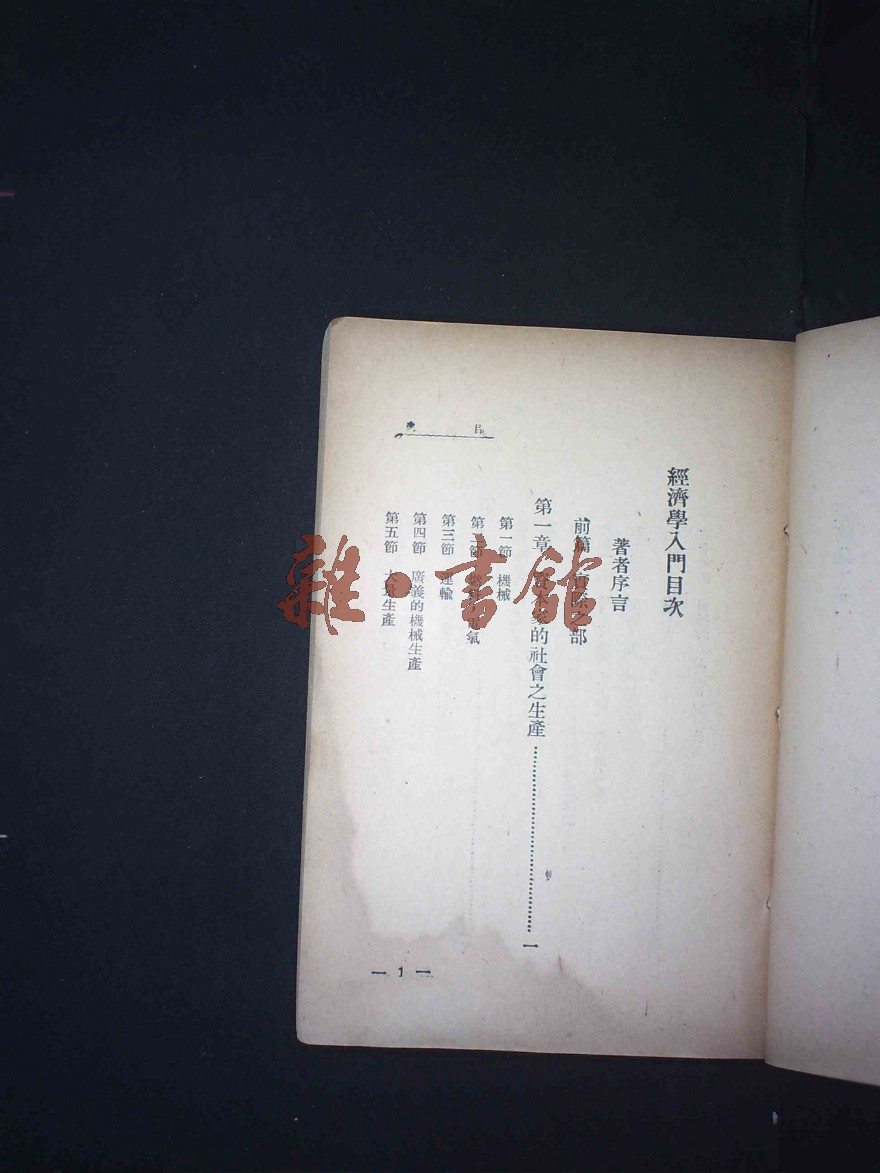 經濟學入門目次
著者序言
前篇 實際之部
第一章 資本家的社會之生產……一
第一節 機械
第二節 電氣
第三節 運輸
第四節 廣義的機械生產
第五節 大量生產
目次
— 1 —
雜·書館